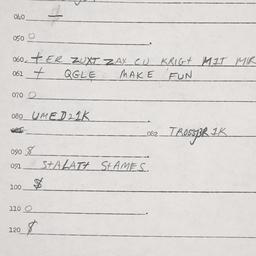 040
050 O
060 + ER ZUXT ZAX CU KRIGT MIT MIR
061 + QGLE MAKE FUN
070 O
080 UMED21K
082 TROSSPR 1K
090 8
091 StALATt StAMES
100 $
110 O
120 $